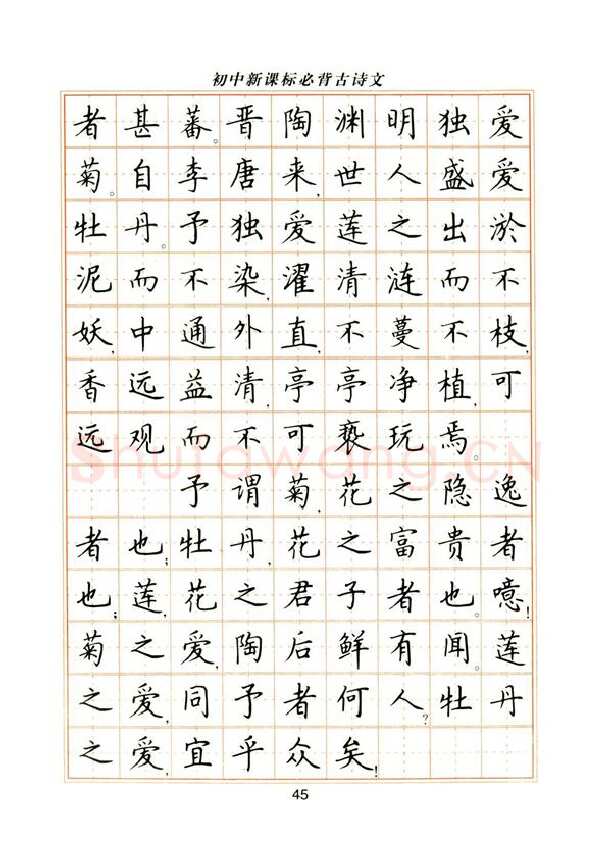 初中新课标必背古诗文
者甚蕃。晋陶渊明独爱
菊。自李唐来,世人盛爱
牡丹。予独爱莲之出淤
泥而不染,濯清涟而不
妖,中通外直,不蔓不枝,
香远益清,亭亭净植,可
远观而不可亵玩焉。
Shufawang.CN
予谓菊,花之隐逸
者也;牡丹,花之富贵者
也;莲,花之君子者也。噫!
菊之爱,陶后鲜有闻。莲
之爱,同予者何人?牡丹
之爱,宜乎众矣!
45